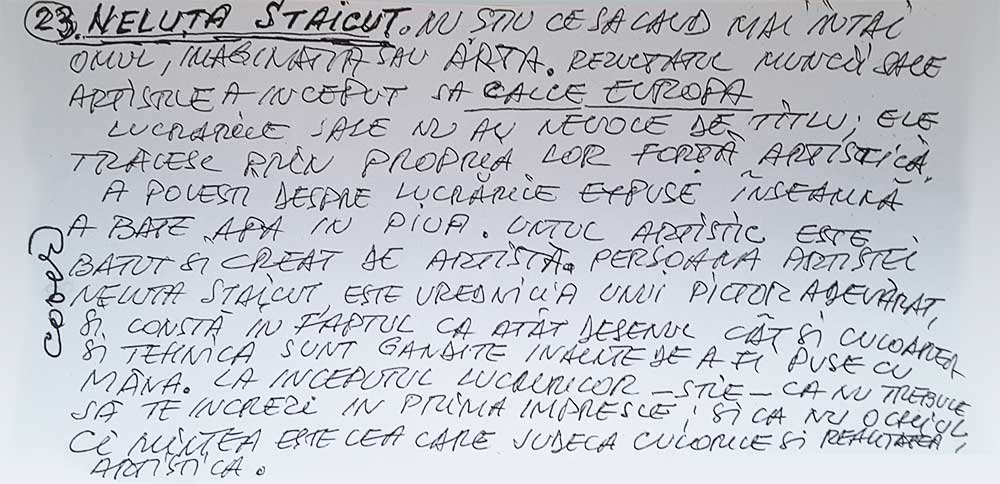 23. NELUTA STAICUT. NU STIU CE SA LAUD MAI INTAI
OMUL, IMAGINATIA SAU ARTA. REZULTATUL MUNCII SALE
ARTISTICE A INCEPUT SA CALCE EUROPA
LUCRARILE SALE NU AU NEVOIE DE TITLU, ELE
TRAIESC PRIN PROPRIA LOR FORȚĂ ARTISTICĂ.
A POVESTI DESPRE LUCRĂRILE EXPUSE ÎNSEAMNĂ
A BATE APA IN PIUA. UNTUL ARTISTIC ESTE
BATUT SI CREAT DE ARTISTĂ. PERSOANA ARTISTEI
NELUTA STAICUT, ESTE VREDNICIA UNUI PICTOR ADEVĂRAT,
SI CONSTĂ IN FAPTUL CA ATÂT DESENUL CÂT SI CULOAREA
SI TEHNICA SUNT GANDITE INAINTE DE A FI PUSE CU
MÂNA. LA INCEPUTUL LUCRURILOR – STIE – CA NU TREBUIE
SĂ TE INCREZI IN PRIMA IMPRESIE; SI CA NU OCHIUL,
CI MINTEA ESTE CEA CARE JUDECA CULORILE SI REALITATEA
ARTISTICA.